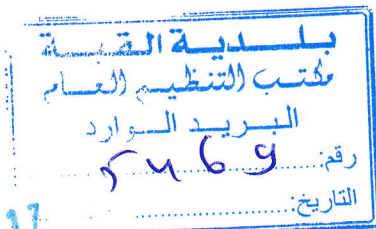 بلدية القبة
مكتب التنظيم العام
البريد الوارد
رقم: 5469
التاريخ:
17